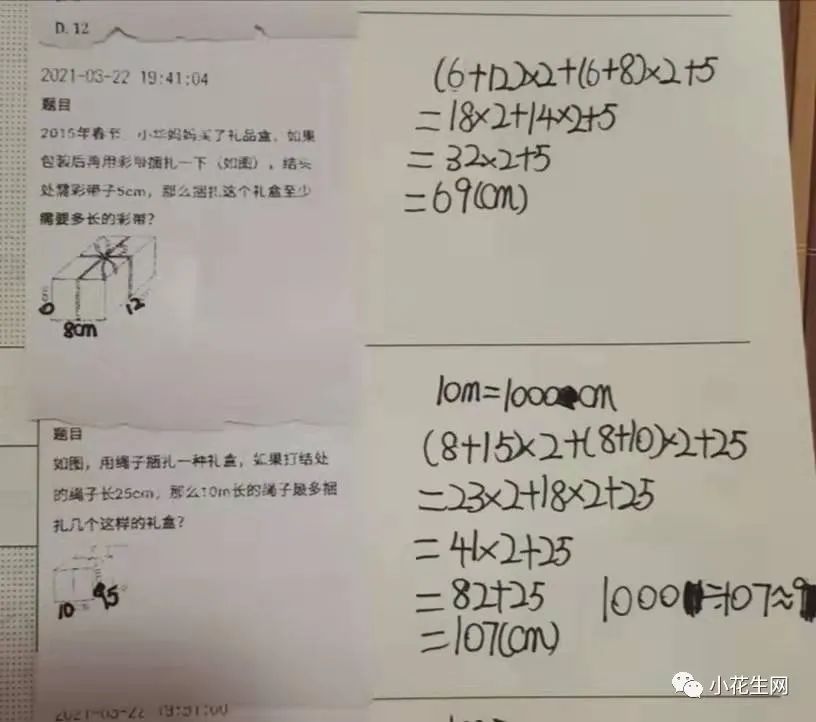 D. 12
2021-03-22 19:41:04
题目
2015年春节，小华妈妈买了礼品盒，如果
包装后再用彩带捆扎一下（如图），结头
处需彩带子5cm，那么捆扎这个礼盒至少
需要多长的彩带？
6
8cm
12
(6+12)×2+(6+8)×2+5
=18×2+14×2+5
=32×2+5
=69(cm)
题目
如图，用绳子捆扎一种礼盒，如果打结处
的绳子长25cm，那么10m长的绳子最多捆
扎几个这样的礼盒？
10
10m=1000cm
(8+15)×2+(8+10)×2+25
=23×2+18×2+25
=41×2+25
=82+25
=107(cm)
1000÷107≈9
2021-03-22 19:31:00
小花生网